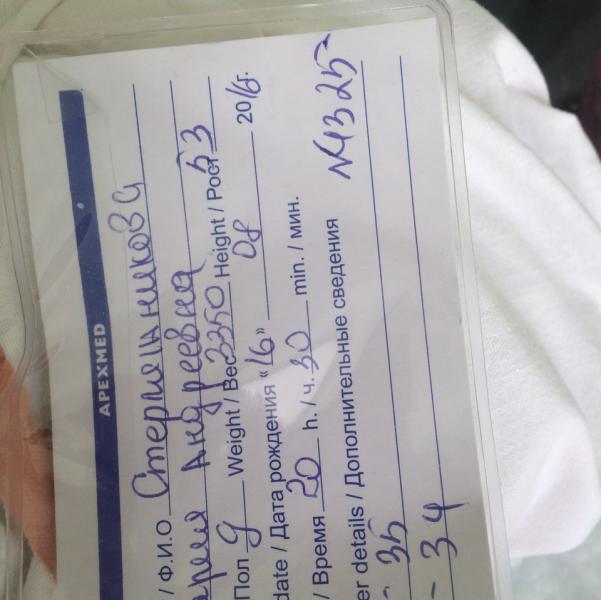 APEXMED
/ Ф.И.О Стерляжникова
Андреевна
Пол д Weight / Вес 3350 Height / Рост 53
date / Дата рождения «16» 08 2016г.
/ Время 20 h. / ч. 30 min. / мин.
er details / Дополнительные сведения №1325
- 35
- 34